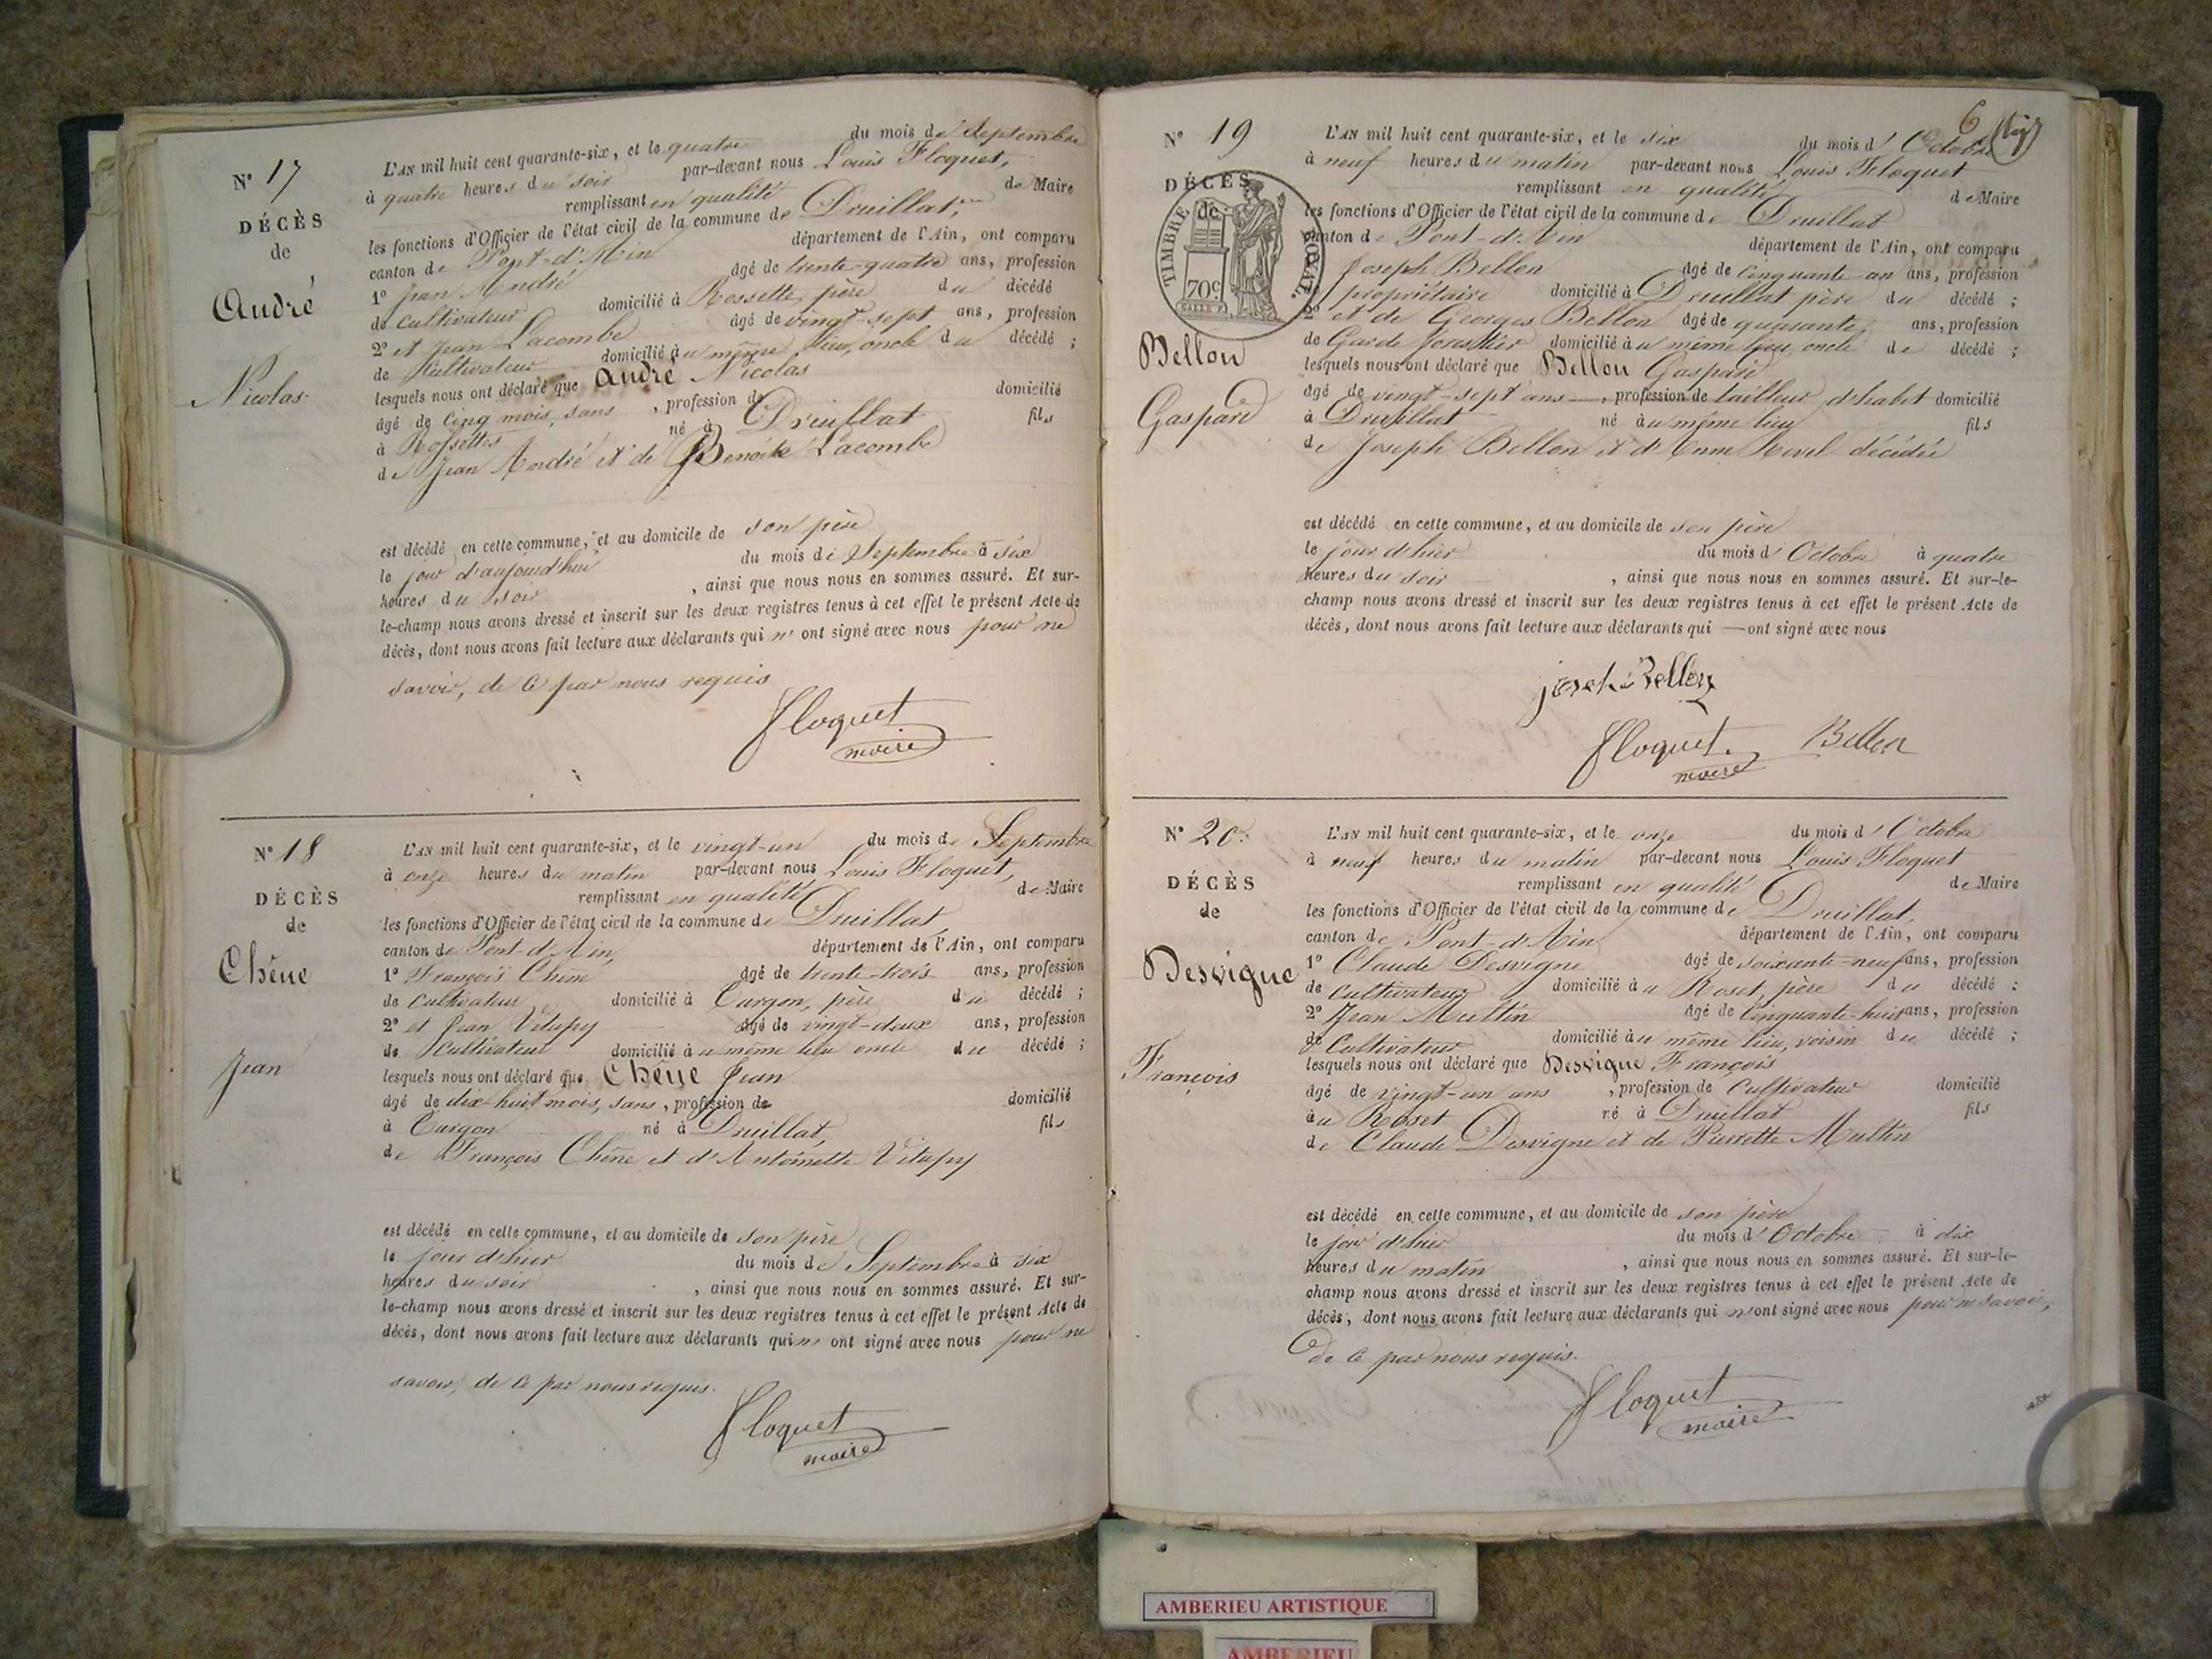 N° 17
DÉCÈS
de
André
Nicolas
L'AN mil huit cent quarante-six, et le quatre du mois de Septembre
à quatre heures du soir par-devant nous Louis Floquet,
remplissant en qualité de Maire
les fonctions d'Officier de l'état civil de la commune de Druillat,
canton de Pont-d'Ain département de l'Ain, ont comparu
1° Jean André âgé de trente-quatre ans, profession
de cultivateur domicilié à Rossette, père du décédé
2° et Jean Lacombe âgé de vingt-sept ans, profession
de Cultivateur domicilié au même lieu, oncle du décédé ;
lesquels nous ont déclaré que André Nicolas
âgé de cinq mois, sans , profession de domicilié
à Rossettes né à Druillat fils
de Jean André et de Benoite Lacombe
est décédé en cette commune, et au domicile de son père
le jour d'aujourd'hui du mois de Septembre à six
heures du soir , ainsi que nous nous en sommes assuré. Et sur-
le-champ nous avons dressé et inscrit sur les deux registres tenus à cet effet le présent Acte de
décès, dont nous avons fait lecture aux déclarants qui n'ont signé avec nous pour ne
savoir, de ce par nous requis
Floquet
maire
N° 18
DÉCÈS
de
Chêne
Jean
L'AN mil huit cent quarante-six, et le vingt-un du mois de Septembre
à onze heures du matin par-devant nous Louis Floquet,
remplissant en qualité de Maire
les fonctions d'Officier de l'état civil de la commune de Druillat,
canton de Pont-d'Ain, département de l'Ain, ont comparu
1° François Chêne âgé de trente-trois ans, profession
de cultivateur domicilié à Turgon, père du décédé ;
2° et Jean Vitupy âgé de vingt-deux ans, profession
de Cultivateur domicilié au même lieu oncle du décédé ;
lesquels nous ont déclaré que Chêne Jean
âgé de dix-huit mois, sans , profession de domicilié
à Turgon né à Druillat, fils
de François Chêne et d'Antoinette Vitupy
est décédé en cette commune, et au domicile de son père
le jour d'hier du mois de Septembre à six
heures du soir , ainsi que nous nous en sommes assuré. Et sur-
le-champ nous avons dressé et inscrit sur les deux registres tenus à cet effet le présent Acte de
décès, dont nous avons fait lecture aux déclarants qui n'ont signé avec nous pour ne
savoir, de ce par nous requis.
Floquet
maire
6
N° 19
DÉCÈS
de
TIMBRE ROYAL.
70c
Bellon
Gaspard
L'AN mil huit cent quarante-six, et le six du mois d'Octobre
à neuf heures du matin par-devant nous Louis Floquet
remplissant en qualité de Maire
les fonctions d'Officier de l'état civil de la commune de Druillat
canton de Pont-d'Ain département de l'Ain, ont comparu
Joseph Bellon âgé de cinquante-un ans, profession
propriétaire domicilié à Druillat père du décédé ;
2° et de Georges Bellon âgé de quarante, ans, profession
de Garde forestier domicilié au même lieu, oncle de décédé ;
lesquels nous ont déclaré que Bellon Gaspard
âgé de vingt-sept ans , profession de tailleur d'habit domicilié
à Druillat né au même lieu fils
de Joseph Bellon et d'Anne Revel décédée
est décédé en cette commune, et au domicile de son père
le jour d'hier du mois d'Octobre à quatre
heures du soir , ainsi que nous nous en sommes assuré. Et sur-le-
champ nous avons dressé et inscrit sur les deux registres tenus à cet effet le présent Acte de
décès, dont nous avons fait lecture aux déclarants qui — ont signé avec nous
joseph Bellon
Floquet. Bellon
maire
N° 20.
DÉCÈS
de
Desvigne
François
L'AN mil huit cent quarante-six, et le onze du mois d'Octobre
à neuf heures du matin par-devant nous Louis Floquet
remplissant en qualité de Maire
les fonctions d'Officier de l'état civil de la commune de Druillat,
canton de Pont-d'Ain département de l'Ain, ont comparu
1° Claude Desvigne âgé de soixante-neuf ans, profession
de cultivateur domicilié au Roset, père du décédé ;
2° Jean Multin âgé de cinquante-huit ans, profession
de Cultivateur domicilié au même lieu, voisin du décédé ;
lesquels nous ont déclaré que Desvigne François
âgé de vingt-un ans , profession de Cultivateur domicilié
au Roset né à Druillat fils
de Claude Desvigne et de Pierrette Multin
est décédé en cette commune, et au domicile de son père
le jour d'hier du mois d'Octobre à dix
heures du matin , ainsi que nous nous en sommes assuré. Et sur-le-
champ nous avons dressé et inscrit sur les deux registres tenus à cet effet le présent Acte de
décès, dont nous avons fait lecture aux déclarants qui n'ont signé avec nous pour ne savoir,
de ce par nous requis.
Floquet
maire
AMBERIEU ARTISTIQUE
AMBERIEU